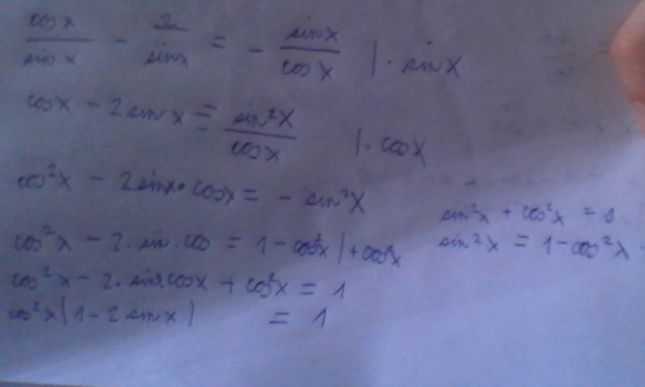 cos x / sin x - 2 / sin x = - sin x / cos x | · sin x
cos x - 2 sin x = - sin²x / cos x | · cos x
cos²x - 2 sin x · cos x = - sin²x
sin²x + cos²x = 1
sin²x = 1 - cos²x
cos²x - 2 · sin · cos = 1 - cos²x | + cos²x
cos²x - 2 · sin x cos x + cos²x = 1
cos²x (1 - 2 sin x) = 1